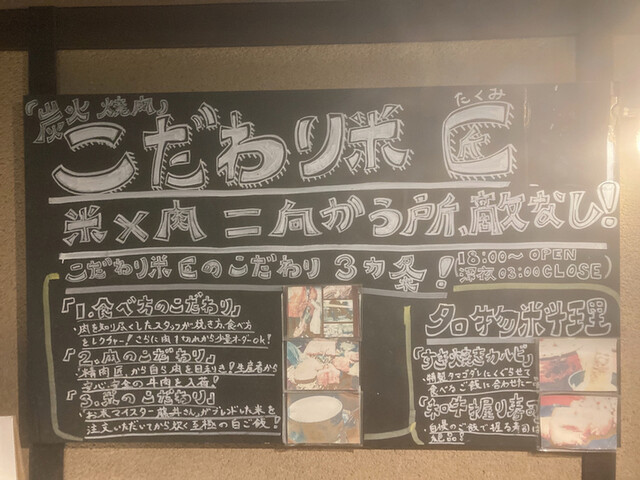 『炭火 焼肉』
こだわり米 匠
たくみ
米×肉 = 向かう所、敵なし!
こだわり米匠のこだわり 3ヵ条!
18:00〜 OPEN
深夜03:00 CLOSE
『1.食べ方のこだわり』
・肉を知り尽くしたスタッフが焼き方、食べ方
をレクチャー!さらに肉1切れから少量オーダーok!
『2.肉のこだわり』
・精肉匠が自ら肉を目利き!生産者から
安心・安全の牛肉を入荷!
『3.米のこだわり』
・お米マイスター藤井さんがブレンドした米を
注文いただいてから炊く至極の白ご飯!
名物料理
『すき焼きカルビ』
・特製タマゴダレにくぐらせて
食べるご飯に合わせた一
『和牛握り寿司
・自慢のご飯で握る寿司は
絶品!